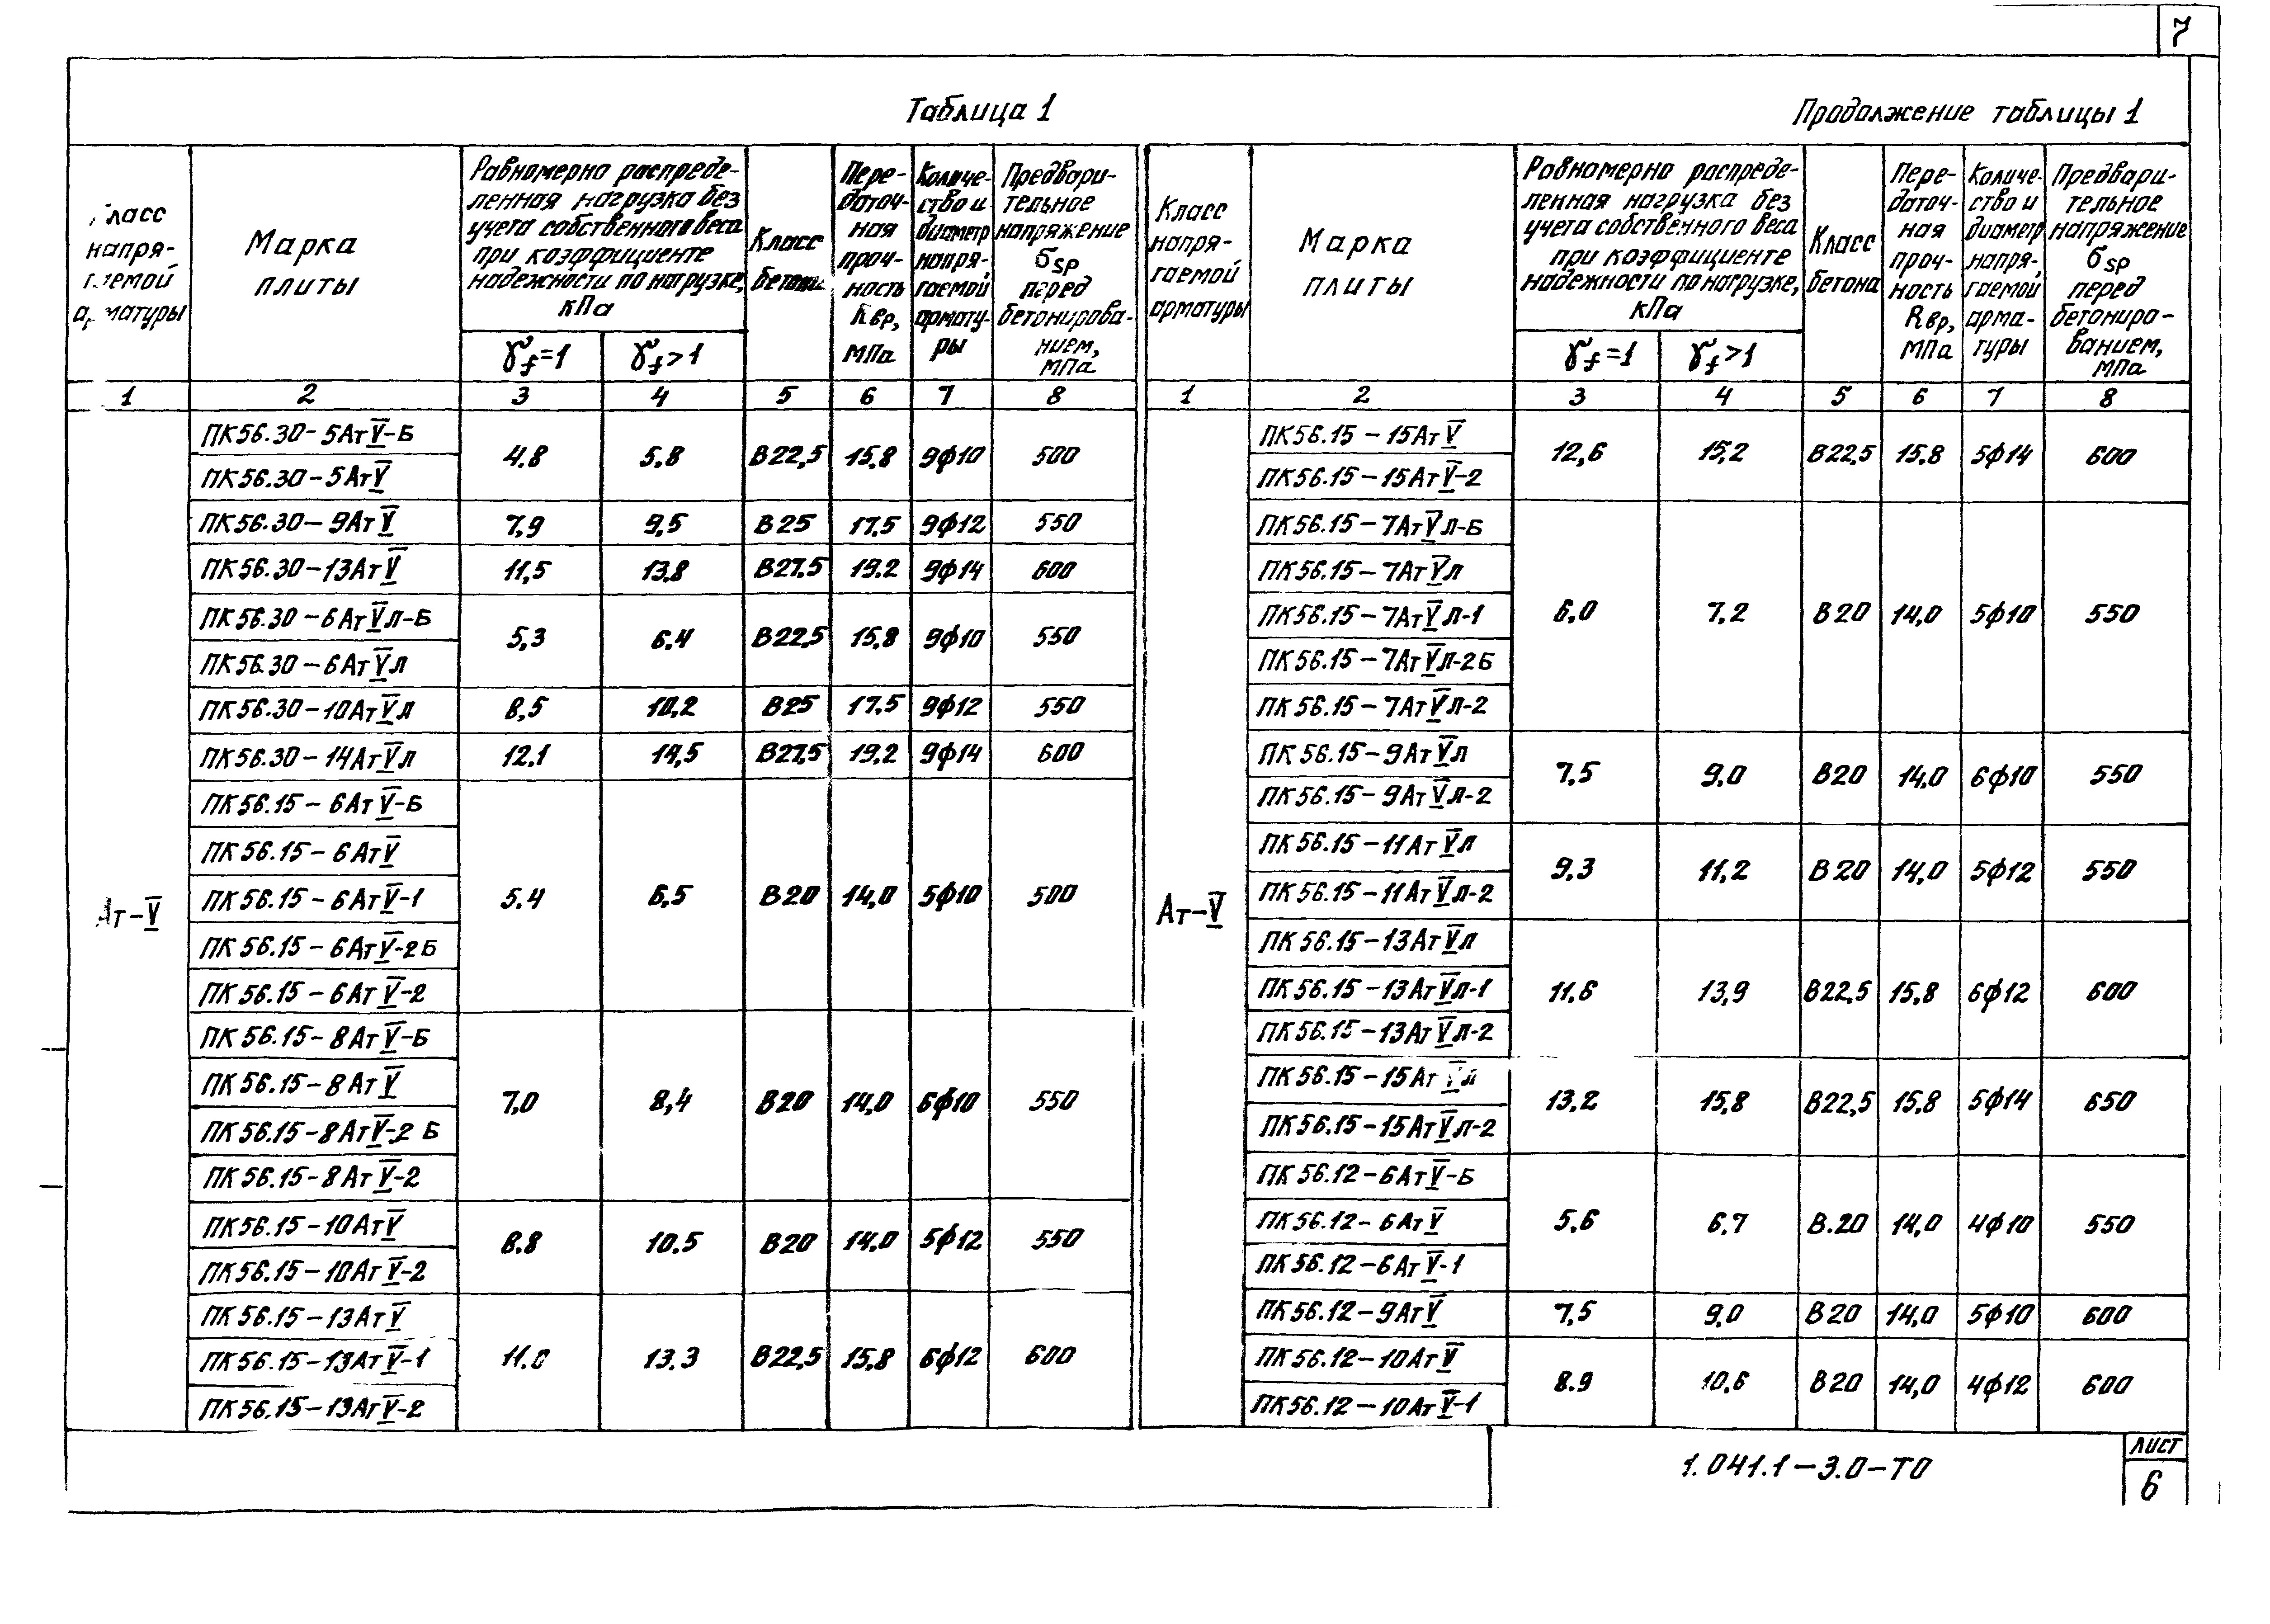 7
Таблица 1
Продолжение таблицы 1
Класс напрягаемой арматуры | Марка плиты | Равномерно распределенная нагрузка без учета собственного веса при коэффициенте надежности по нагрузке, кПа | Класс бетона | Передаточная прочность Rвр, МПа | Количество и диаметр напрягаемой арматуры | Предварительное напряжение σsp перед бетонированием, МПа
ɣf=1 | ɣf>1
1 | 2 | 3 | 4 | 5 | 6 | 7 | 8
Ат-V
ПК56.30-5АтV-Б | 4.8 | 5.8 | В22,5 | 15,8 | 9ф10 | 500
ПК56.30-5АтV
ПК56.30-9АтV | 7,9 | 9,5 | В25 | 17.5 | 9ф12 | 550
ПК56.30-13АтV | 11,5 | 13.8 | В27,5 | 19.2 | 9ф14 | 600
ПК56.30-6АтVл-Б | 5,3 | 6.4 | В22,5 | 15,8 | 9ф10 | 550
ПК56.30-6АтVл
ПК56.30-10АтVл | 8,5 | 10,2 | В25 | 17.5 | 9ф12 | 550
ПК56.30-14АтVл | 12.1 | 14,5 | В27,5 | 19.2 | 9ф14 | 600
ПК56.15-6АтV-Б | 5.4 | 6,5 | В20 | 14,0 | 5ф10 | 500
ПК56.15-6АтV
ПК56.15-6АтV-1
ПК56.15-6АтV-2Б
ПК56.15-6АтV-2
ПК56.15-8АтV-Б | 7,0 | 8,4 | В20 | 14,0 | 6ф10 | 550
ПК56.15-8АтV
ПК56.15-8АтV-2Б
ПК56.15-8АтV-2
ПК56.15-10АтV | 8.8 | 10.5 | В20 | 14.0 | 5ф12 | 550
ПК56.15-10АтV-2
ПК56.15-13АтV | 11.0 | 13.3 | В22,5 | 15,8 | 6ф12 | 600
ПК56.15-13АтV-1
ПК56.15-13АтV-2
Класс напрягаемой арматуры | Марка плиты | Равномерно распределенная нагрузка без учета собственного веса при коэффициенте надежности по нагрузке, кПа | Класс бетона | Передаточная прочность Rвр, МПа | Количество и диаметр напрягаемой арматуры | Предварительное напряжение σsp перед бетонированием, МПа
ɣf=1 | ɣf>1
1 | 2 | 3 | 4 | 5 | 6 | 7 | 8
Ат-V
ПК56.15-15АтV | 12,6 | 15,2 | В22,5 | 15,8 | 5ф14 | 600
ПК56.15-15АтV-2
ПК56.15-7АтVл-Б | 6,0 | 7,2 | В20 | 14,0 | 5ф10 | 550
ПК56.15-7АтVл
ПК56.15-7АтVл-1
ПК56.15-7АтVл-2Б
ПК56.15-7АтVл-2
ПК56.15-9АтVл | 7,5 | 9,0 | В20 | 14,0 | 6ф10 | 550
ПК56.15-9АтVл-2
ПК56.15-11АтVл | 9.3 | 11,2 | В20 | 14,0 | 5ф12 | 550
ПК56.15-11АтVл-2
ПК56.15-13АтVл | 11.6 | 13,9 | В22,5 | 15,8 | 6ф12 | 600
ПК56.15-13АтVл-1
ПК56.15-13АтVл-2
ПК56.15-15АтVл | 13.2 | 15,8 | В22,5 | 15,8 | 5ф14 | 650
ПК56.15-15АтVл-2
ПК56.12-6АтV-Б | 5,6 | 6,7 | В.20 | 14,0 | 4ф10 | 550
ПК56.12-6АтV
ПК56.12-6АтV-1
ПК56.12-9АтV | 7,5 | 9,0 | В20 | 14,0 | 5ф10 | 600
ПК56.12-10АтV | 8.9 | 10,6 | В20 | 14,0 | 4ф12 | 600
ПК56.12-10АтV-1
1.041.1-3.0-ТО
ЛИСТ
6